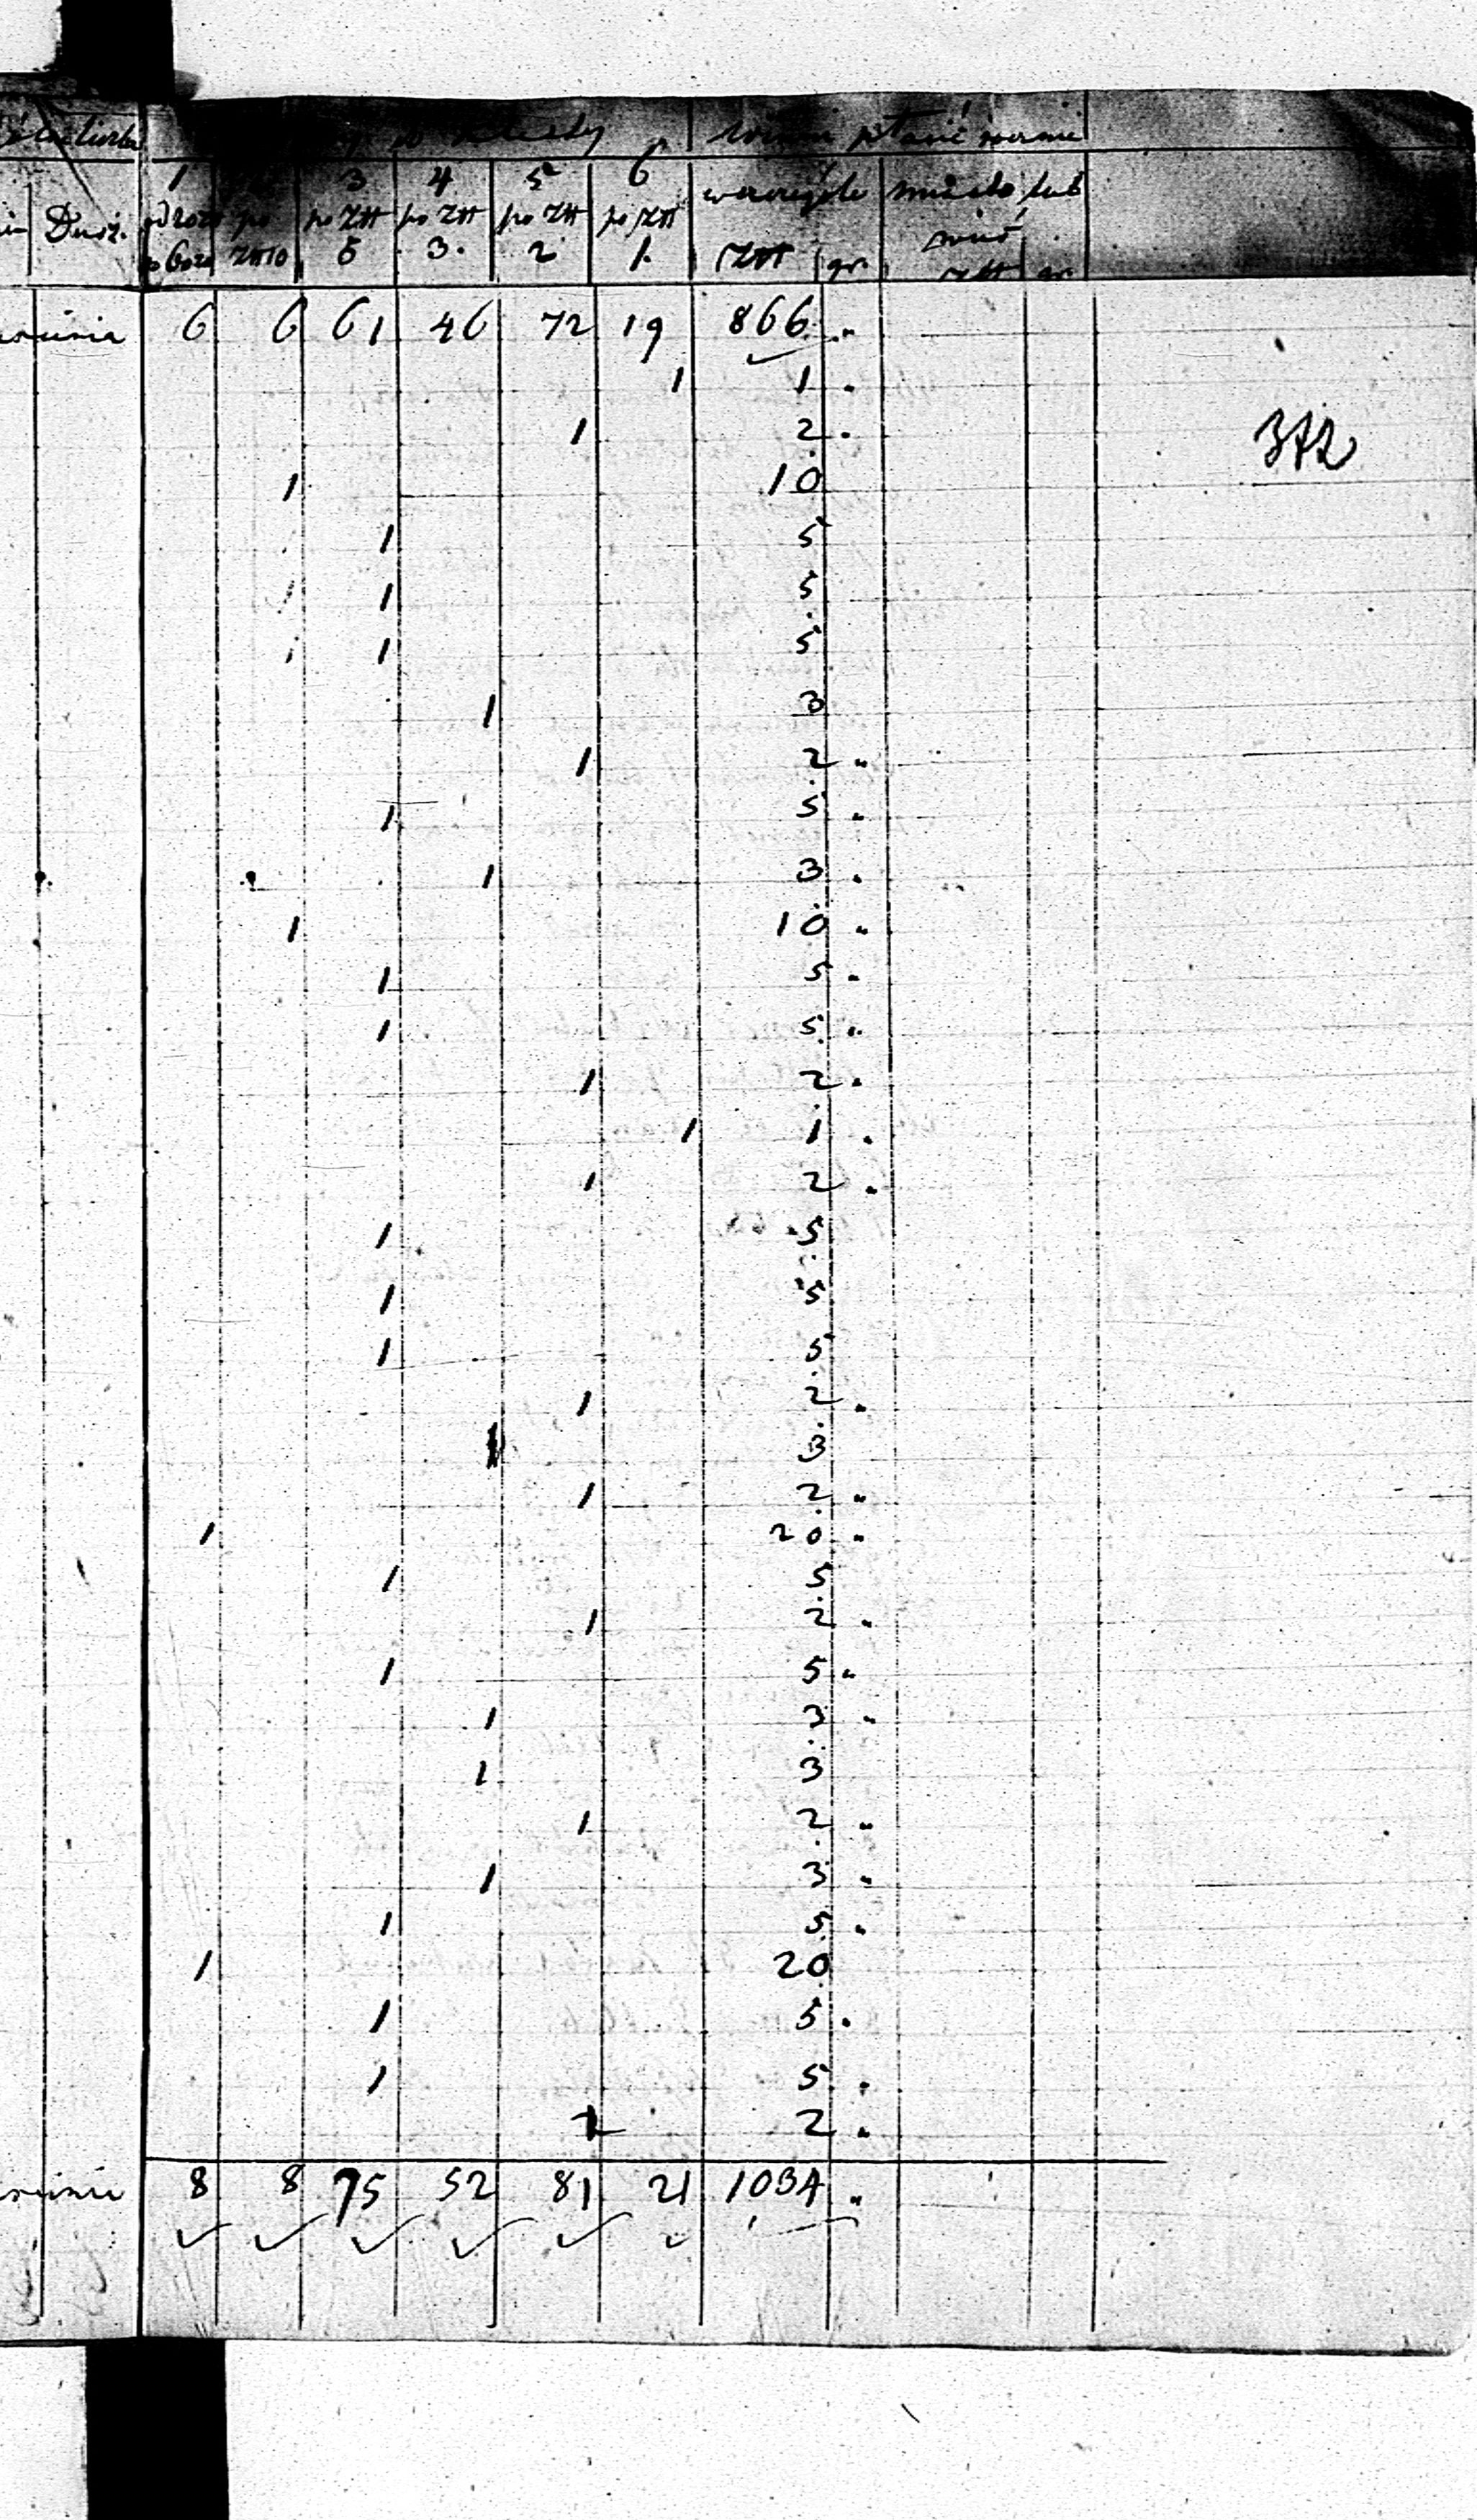 do klassy winni płacić summę
1 3 4 5 6 w szczególe miasto lub
Dusz. po po Złł po Złł po Złł po Złł wieś
Złł10 5 3. 2 1. Złł gr. Złł gr.
6 6 61 46 72 19 866 "
1 1 "
1 2 "
372
1 10
1 5
1 5
1 5
1 3
1 2 "
1 5 "
1 3 "
1 10 "
1 5 "
1 5 "
1 2 "
1 1 "
1 2 "
1 5
1 5
1 5
1 2 "
1 3
1 2 "
1 20 "
1 5
1 2 "
1 5 "
1 3 "
1 3
1 2 "
1 3 "
1 5 "
1 20
1 5 "
1 5 "
1 2 "
8 8 75 52 81 21 1034 "